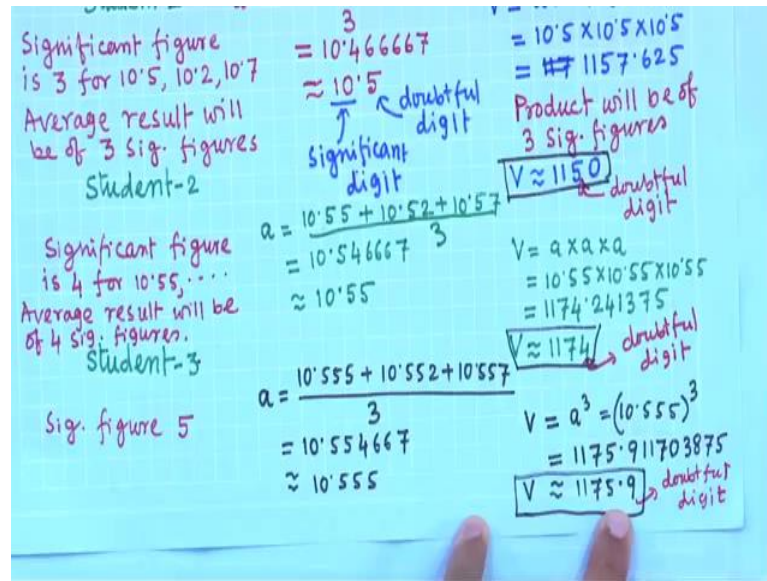 Significant figure
is 3 for 10·5, 10·2, 10·7
Average result will
be of 3 sig. figures
Student-2
Significant figure
is 4 for 10·55, ····
Average result will be
of 4 sig. figures.
Student-3
Sig. figure 5
3
= 10·466667
≈ 10·5
doubtful
digit
significant
digit
a = 10·55 + 10·52 + 10·57
3
= 10·546667
≈ 10·55
a = 10·555 + 10·552 + 10·557
3
= 10·554667
≈ 10·555
= 10·5 X 10·5 X 10·5
= 1157·625
Product will be of
3 sig. figures
V ≈ 1150
doubtful
digit
V = a x a x a
= 10·55 X 10·55 X 10·55
= 1174·241375
V ≈ 1174
doubtful
digit
V = a³ = (10·555)³
= 1175·911703875
V ≈ 1175·9
doubtful
digit